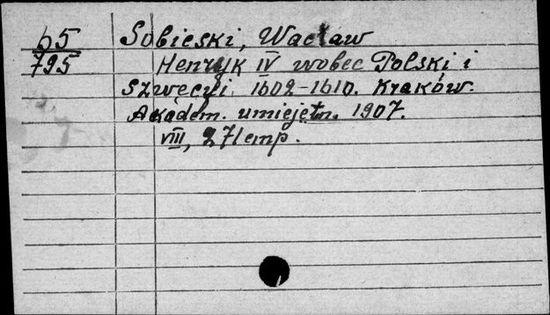 65 Sobieski, Wacław
795 Henryk IV wobec Polski i
Szwecyi 1602-1610. Kraków.
Akadem. umiejętn. 1907.
VIII, 271 emp.